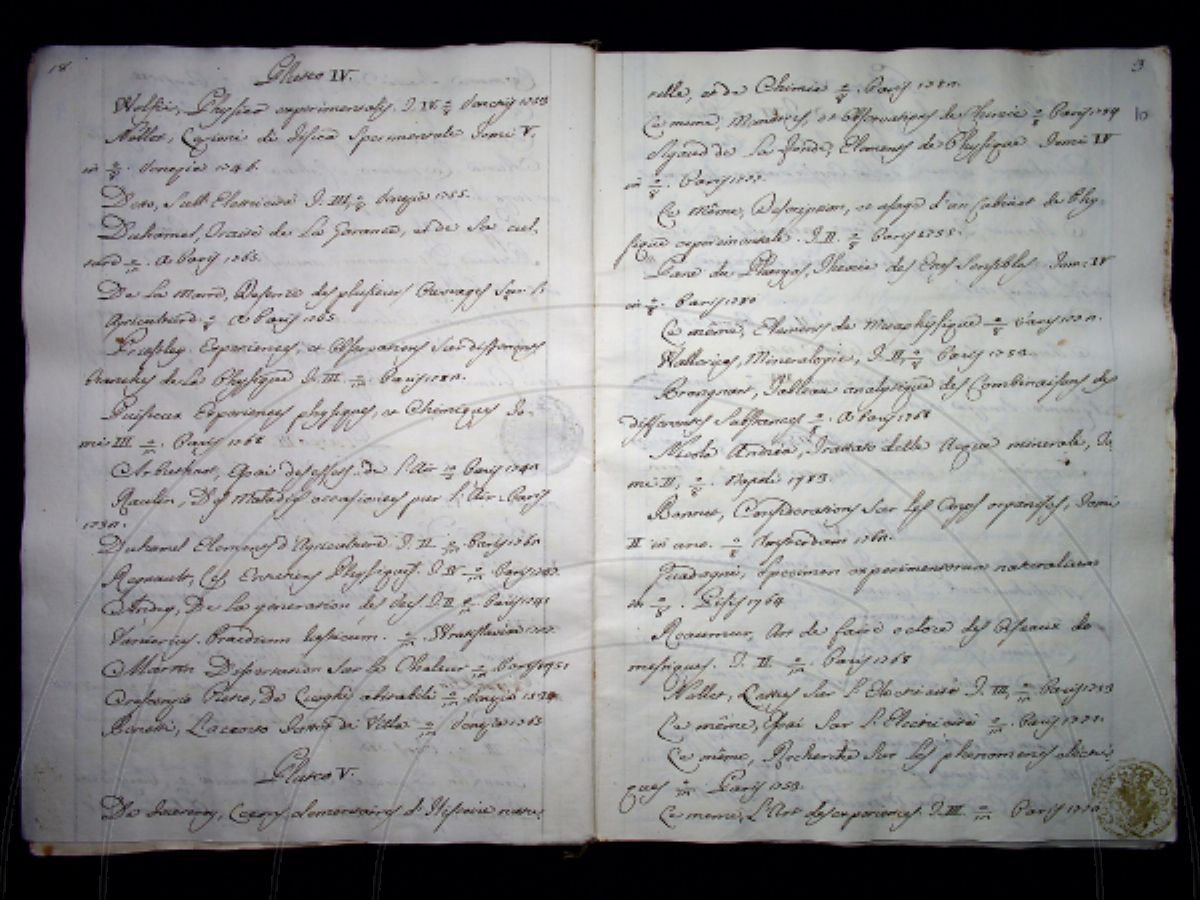 18
Pluteo IV.
Wolfii, Physica experimentalis. T. II.
Nollet, Lezioni di Fisica Sperimentale Tomi V,
in 8. Venezia 1746.
Detto, Sull' Elettricità T. III, 8 Venezia 1755.
Duhamel, Traité de La Garance, et de Sa cul-
ture. A Paris 1765.
De La Marre, Defense de plusieurs Ouvrages sur l'
Agriculture. A Paris 1765.
Priestley. Experiences, et Observations sur differentes
branches de La Physique T. III. Paris
Experiences physiques, et Chimiques To-
mi III. Paris 1768
Arbuthnot, Essai des effets de l'Air Paris
Raulin, Des Maladies occasionées par l'Air Paris
Duhamel Elemens d'Agriculture T. II. Paris
Regnault, Les Entretiens Physiques. T. IV Paris
Andry, De La generation des Vers T. II Paris 1741
Vanierius. Praedium rusticum. Wratislaviae
Martin Dissertation Sur la Chaleur Paris 1751
Crescenzio Pietro, De Venezia
Benetti, L'accorto Fattor di Villa Venezia 1763
Pluteo V.
Cours elementaires d'Histoire natu-
3
10
relle, et de Chimie 8. Paris
Le meme, Memoires, et Observations de Chimie 8 Paris 1784
Sigaud de La Fonde, Elemens de Physique Tomi IV
in 8. Paris
Le Même, Description, et usage d'un Cabinet de Phy-
sique experimentale. T. II. 8 Paris
Para du Phanjas, Theorie des Etres Sensibles. Tom. IV
in 8. Paris
Le même, Elemens de Metaphysique 8 Paris
Wallerius, Mineralogie, T. II, 8 Paris 1753.
Brongnart, Tableau analytique des Combinaisons des
differentes Substances 8. A Paris
Nicola Andria, Trattato delle Acque minerale, To-
mi II, 8. Napoli 1783.
Bonnet, Considerations Sur Les Corps organisés, Tomi
II in uno. 8 Amsterdam
Guadagni, Specimen experimentorum naturalium
in 8. Pisis 1764
Reaumur, Art de faire eclore des Oiseaux do-
mestiques. T. II Paris
Nollet, Lettres Sur L'Electricité T. III, Paris 1753
Le même, Essai Sur L'Electricité Paris
Le même, Recherche Sur Les phenomenes electri-
ques Paris 1753.
Le meme, L'Art des experiences. T. III Paris 1770